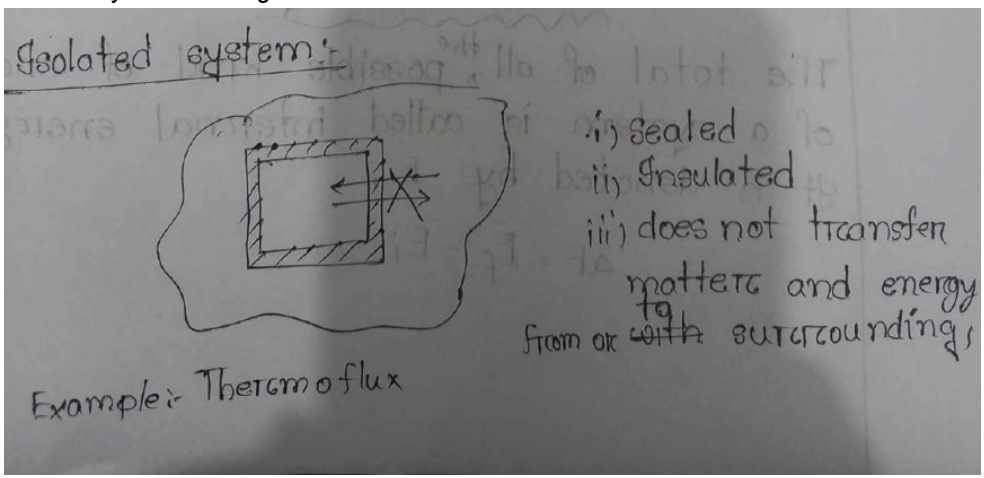 Isolated system:-
i) sealed
ii) Insulated
iii) does not transfer
matter and energy
to
from or with surroundings,
Example:- Thermoflux